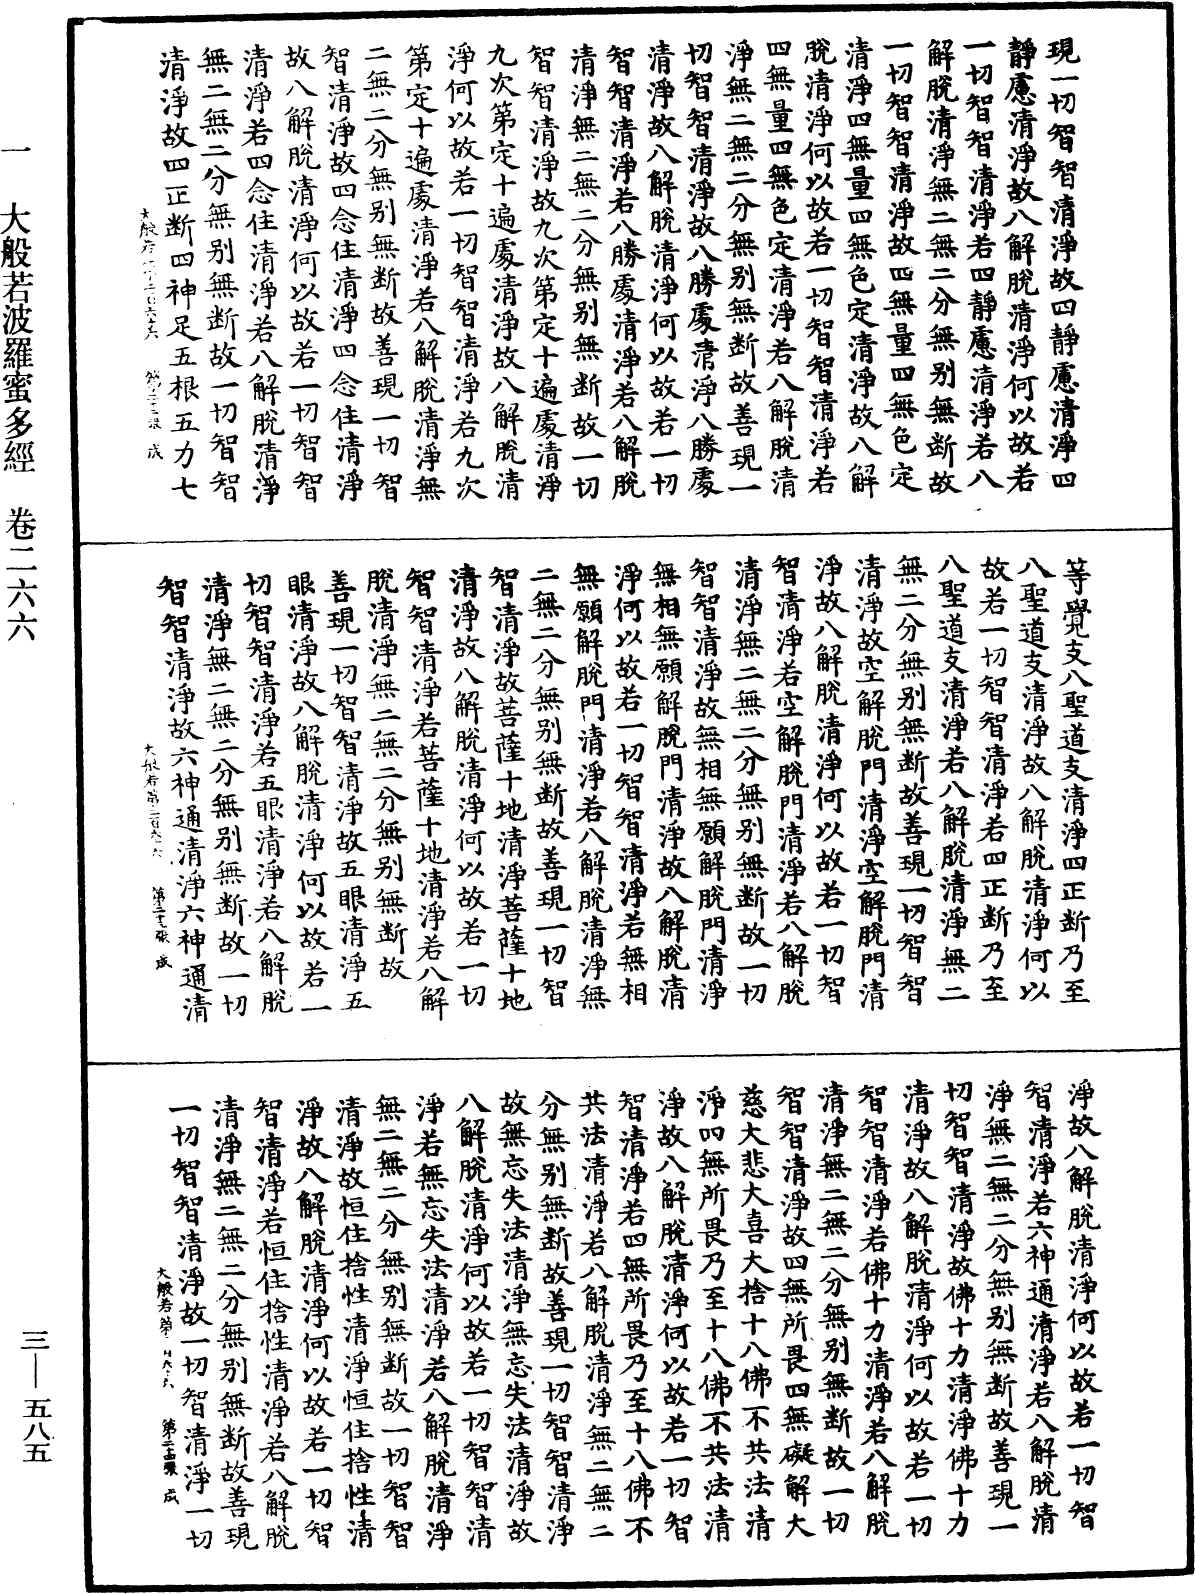 現一切智智清淨故四靜慮清淨四
靜慮清淨故八解脫清淨何以故若
一切智智清淨若四靜慮清淨若八
解脫清淨無二無二分無別無斷故
一切智智清淨故四無量四無色定
清淨四無量四無色定清淨故八解
脫清淨何以故若一切智智清淨若
四無量四無色定清淨若八解脫清
淨無二無二分無別無斷故善現一
切智智清淨故八勝處清淨八勝處
清淨故八解脫清淨何以故若一切
智智清淨若八勝處清淨若八解脫
清淨無二無二分無別無斷故一切
智智清淨故九次第定十遍處清淨
九次第定十遍處清淨故八解脫清
淨何以故若一切智智清淨若九次
第定十遍處清淨若八解脫清淨無
二無二分無別無斷故善現一切智
智清淨故四念住清淨四念住清淨
故八解脫清淨何以故若一切智智
清淨若四念住清淨若八解脫清淨
無二無二分無別無斷故一切智智
清淨故四正斷四神足五根五力七
等覺支八聖道支清淨四正斷乃至
八聖道支清淨故八解脫清淨何以
故若一切智智清淨若四正斷乃至
八聖道支清淨若八解脫清淨無二
無二分無別無斷故善現一切智智
清淨故空解脫門清淨空解脫門清
淨故八解脫清淨何以故若一切智
智清淨若空解脫門清淨若八解脫
清淨無二無二分無別無斷故一切
智智清淨故無相無願解脫門清淨
無相無願解脫門清淨故八解脫清
淨何以故若一切智智清淨若無相
無願解脫門清淨若八解脫清淨無
二無二分無別無斷故善現一切智
智清淨故菩薩十地清淨菩薩十地
清淨故八解脫清淨何以故若一切
智智清淨若菩薩十地清淨若八解
脫清淨無二無二分無別無斷故
善現一切智智清淨故五眼清淨五
眼清淨故八解脫清淨何以故若一
切智智清淨若五眼清淨若八解脫
清淨無二無二分無別無斷故一切
智智清淨故六神通清淨六神通清
大般若第二百六十六 第二十三張 成
淨故八解脫清淨何以故若一切智
智清淨若六神通清淨若八解脫清
淨無二無二分無別無斷故善現一
切智智清淨故佛十力清淨佛十力
清淨故八解脫清淨何以故若一切
智智清淨若佛十力清淨若八解脫
清淨無二無二分無別無斷故一切
智智清淨故四無所畏四無礙解大
慈大悲大喜大捨十八佛不共法清
淨四無所畏乃至十八佛不共法清
淨故八解脫清淨何以故若一切智
智清淨若四無所畏乃至十八佛不
共法清淨若八解脫清淨無二無二
分無別無斷故善現一切智智清淨
故無忘失法清淨無忘失法清淨故
八解脫清淨何以故若一切智智清
淨若無忘失法清淨若八解脫清淨
無二無二分無別無斷故一切智智
清淨故恒住捨性清淨恒住捨性清
淨故八解脫清淨何以故若一切智
智清淨若恒住捨性清淨若八解脫
清淨無二無二分無別無斷故善現
一切智智清淨故一切智清淨一切
一 大般若波羅蜜多經 卷二六六
三—五八五